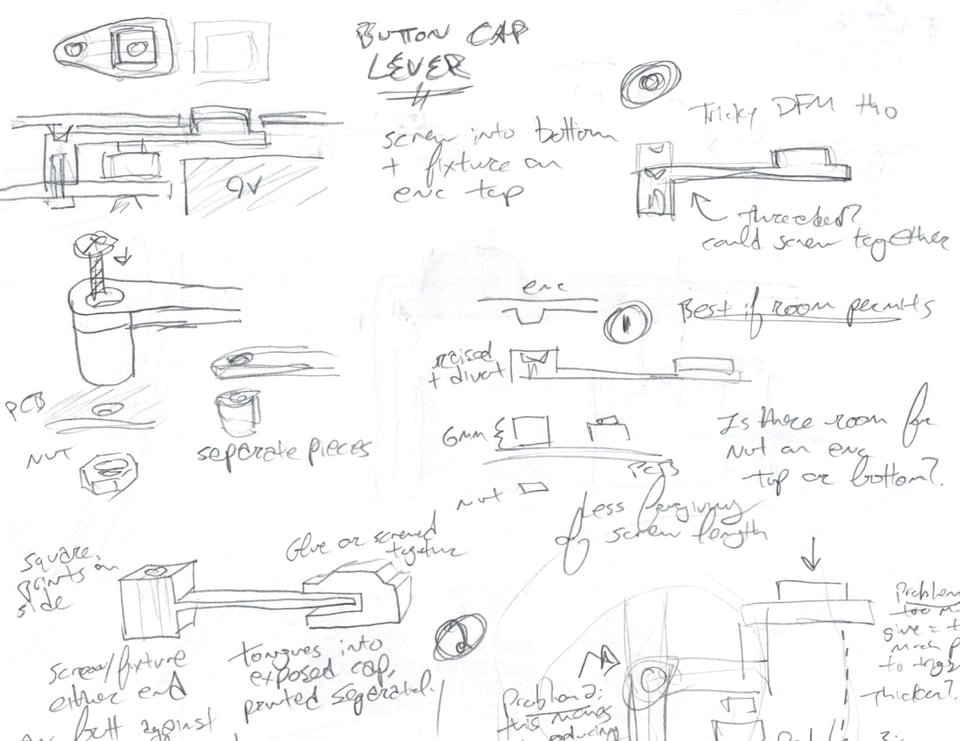 BUTTON CAP
LEVER
screw into bottom
+ fixture on
enc top
9V
0
Tricky DFM tho
threaded?
could screw together
enc
1
Best if room permits
raised
+ divot
6mm
PCB
PCB
nut
separate pieces
nut
Is there room for
nut on enc
top or bottom?
Less forgiving
of screw length
square,
points on
side
Glue or screwed
together
2
screw/fixture
either end
butt against
tongues into
exposed cap,
printed seperately.
Problem 2:
this means
Problem
too
give = t
much p
to trigg
thicker?